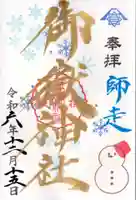 奉拝
師走
御嶽神社
令和六年十二月十五日